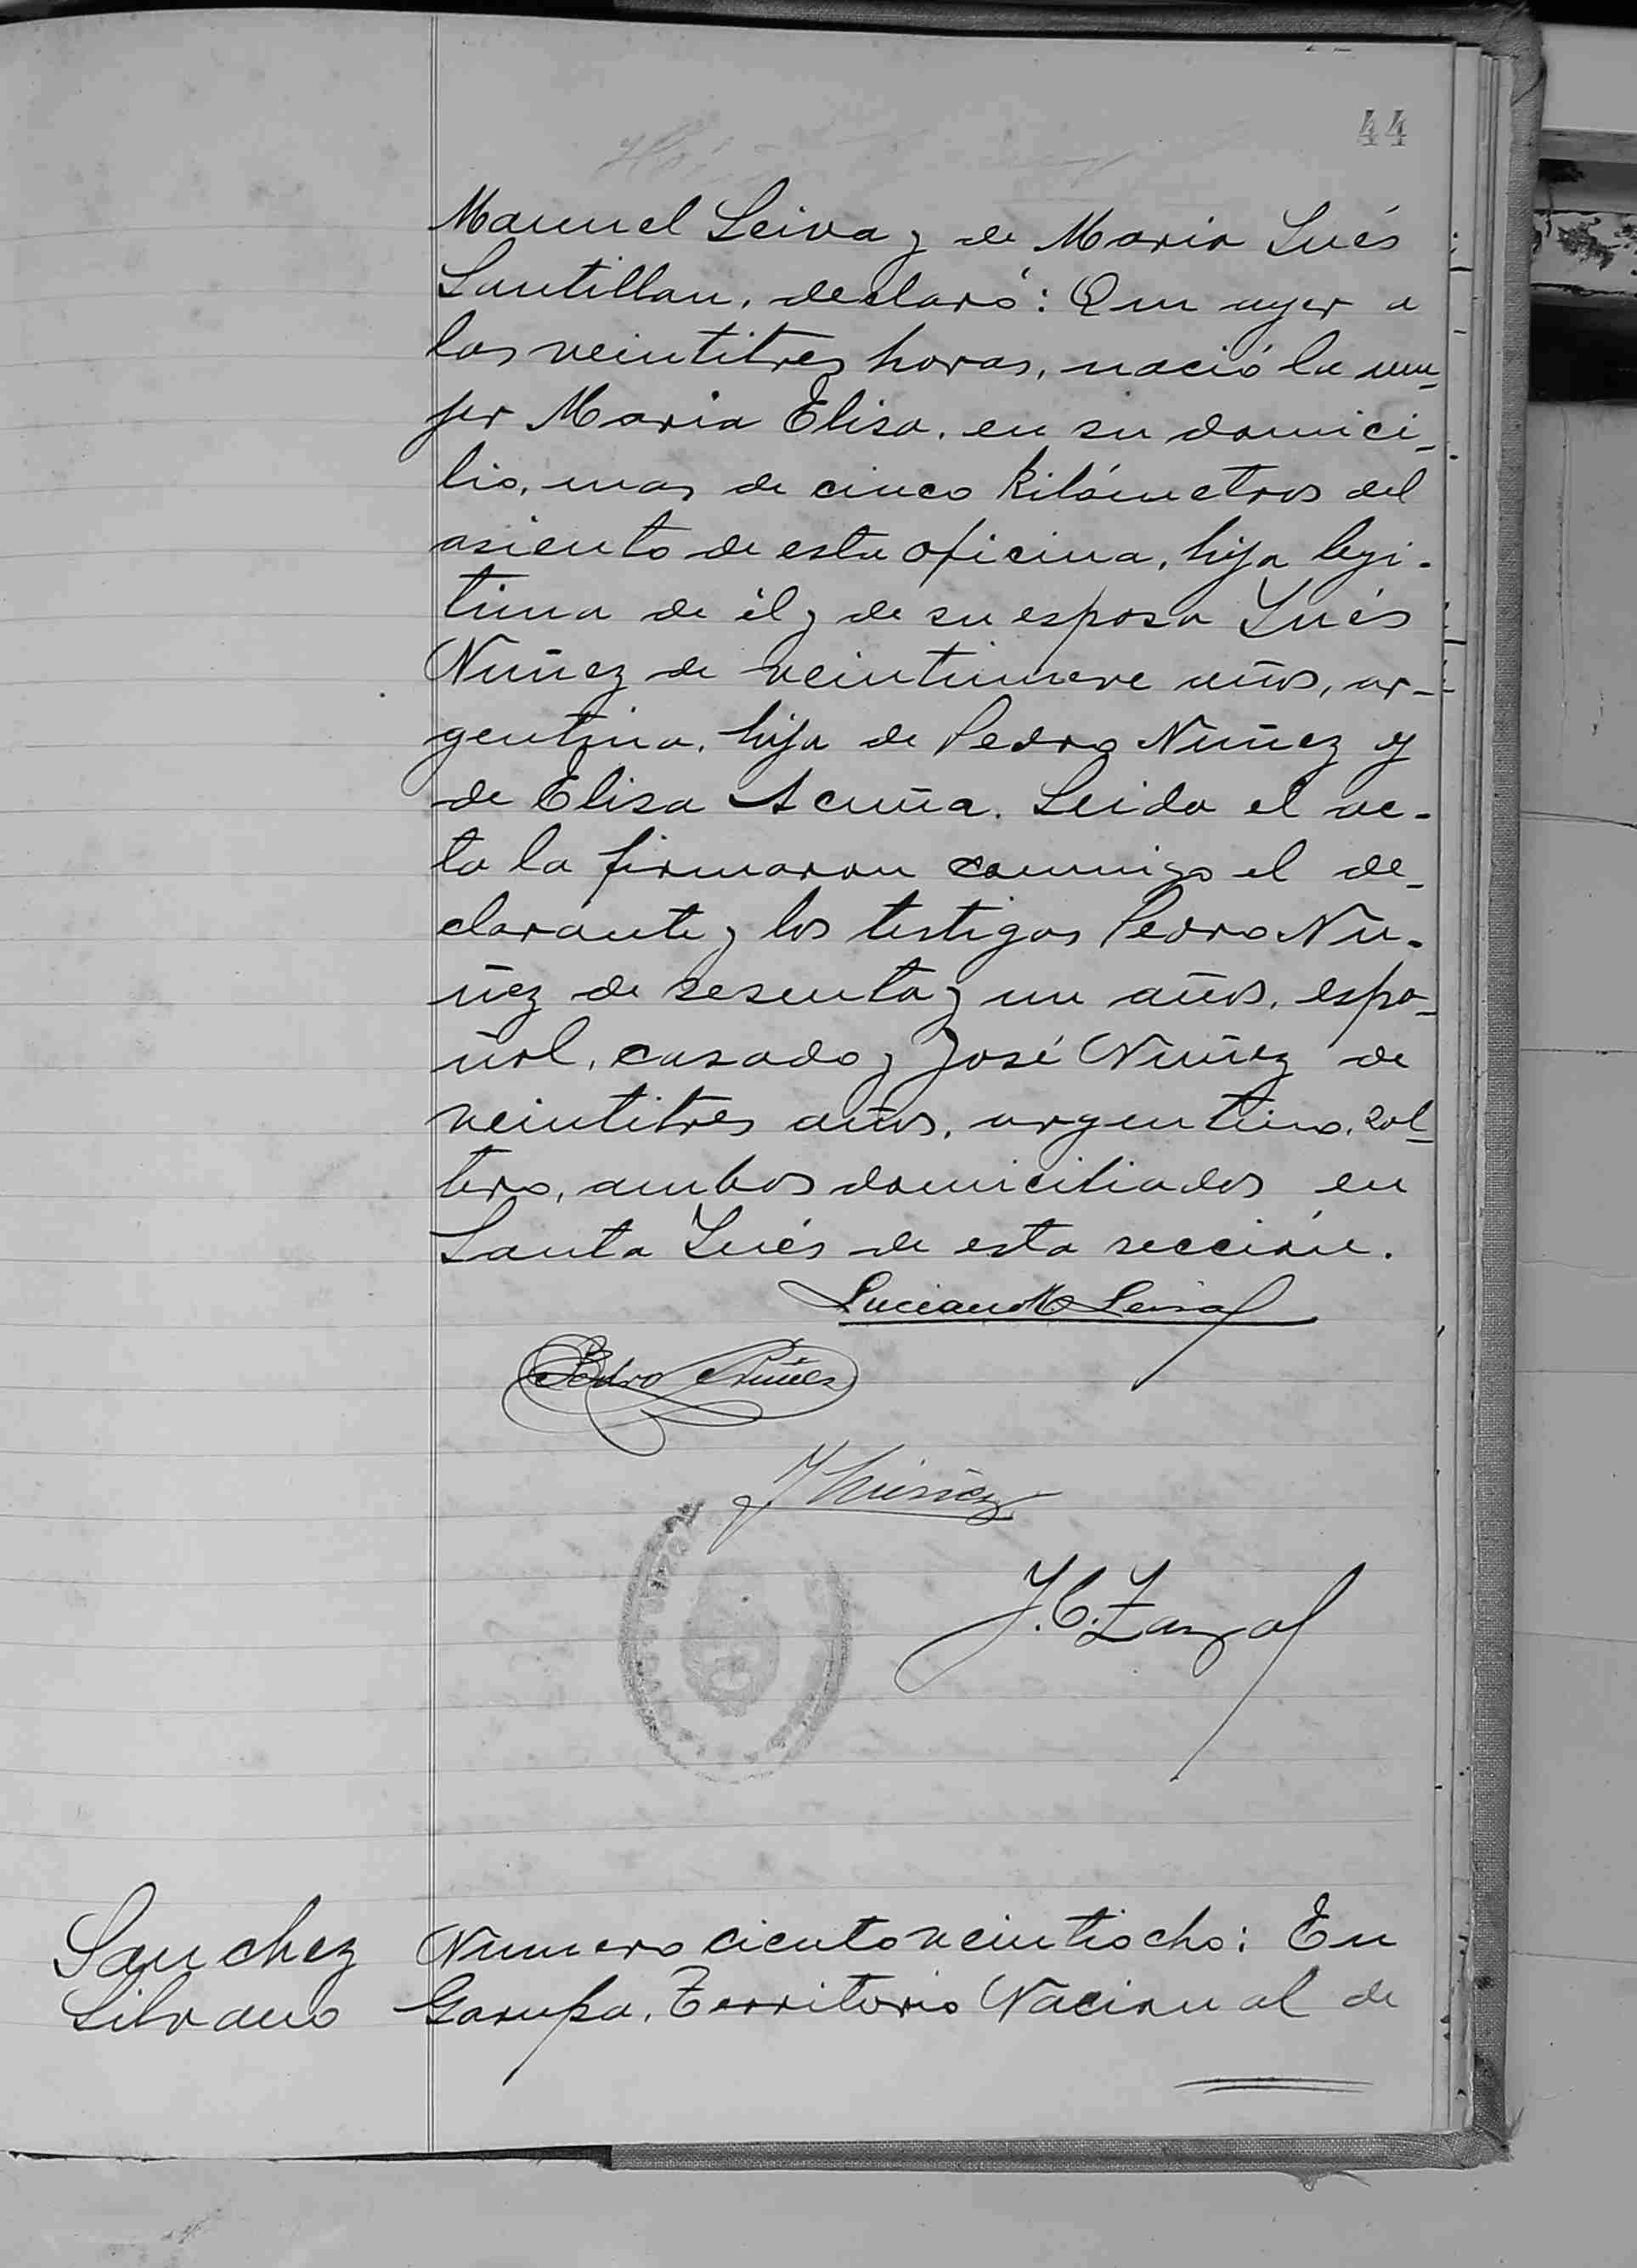 44
Manuel Leiva y de Maria Inés
Santillan, declaró: Que ayer a
las veintitres horas, nació la mu-
jer Maria Elisa, en su domici-
lio, mas de cinco kilómetros del
asiento de esta oficina, hija legi-
tima de él y de su esposa Inés
Nuñez de veintinueve años, ar-
gentina, hija de Pedro Nuñez y
de Elisa Acuña. Leida el ac-
ta la firmaron conmigo el de-
clarante y los testigos Pedro Nu-
ñez de sesenta y un años, espa-
ñol, casado y José Nuñez de
veintitres años, argentino, sol-
tero, ambos domiciliados en
Santa Inés de esta sección.
Luciano M Leiva
Pedro Nuñez
J Nuñez
J. C.
Sanchez
Silvano
Numero ciento veintiocho: En
Garupa, Territorio Nacional de